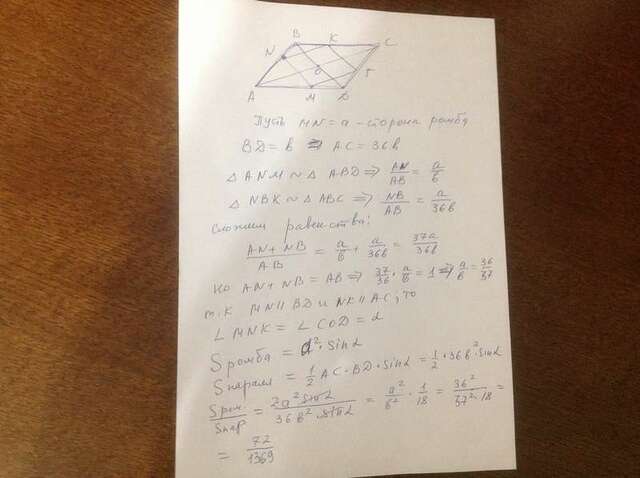 B K C
N
O T
A M D
Пусть MN = a - сторона ромба
BD = b ⇒ AC = 36b
△ ANM ~ △ ABD ⇒ AN/AB = a/b
△ NBK ~ △ ABC ⇒ NB/AB = a/36b
Сложим равенства:
AN + NB/AB = a/b + a/36b = 37a/36b
Но AN + NB = AB ⇒ 37/36 · a/b = 1 ⇒ a/b = 36/37
т.к MN || BD и NK || AC, то
∠ MNK = ∠ COD = α
S ромба = a² · sin α
S паралл = 1/2 AC · BD · sin α = 1/2 · 36 b² · sin α
S ром/S пар = 2a² sin α/36 b² · sin α = a²/b² · 1/18 = 36²/37² · 18 =
= 72/1369